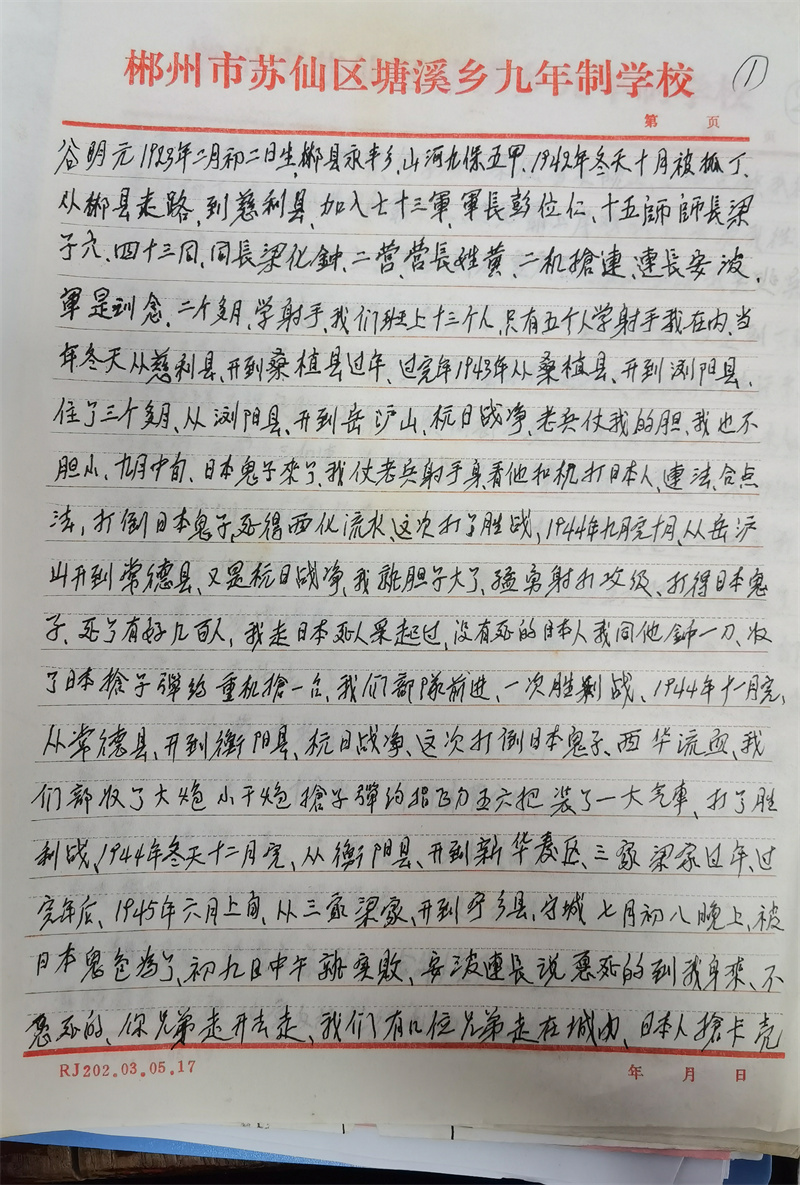 郴州市苏仙区塘溪乡九年制学校
①
第 页
谷明元1923年二月初二日生,郴县永丰乡,山河九保五甲,1942年冬天十月被抓丁、
从郴县走路,到慈利县,加入七十三軍,軍長彭位仁、十五師師長梁
子六、四十三同,同長梁化鈡、二营,营長姓黄、二机搶連,連長安波、
軍是刘念、二个多月,学射手,我们班上十三个人,只有五个人学射手我在内,当
年冬天从慈利县,开到桑植县过年、过完年1943年从桑植县、开到浏阳县,
住了三个多月、从浏阳县、开到岳沪山、杭日战净、老兵仗我的胆、我也不
胆小、九月中旬、日本鬼子來了、我仗老兵射手身看他和机打日本人、連法、合点
法、打倒日本鬼子、死得西化流水、这次打了胜战、1944年九月完十月、从岳沪
山开到常德县、又是杭日战净、我就胆子大了、猛勇射打攻级、打得日本鬼
子、死了有好几百人、我走日本死人累起过,没有死的日本人我同他一刀、收
了日本搶子彈约重机搶一台、我们部隊前进、一次胜利战、1944年十一月完、
从常德县、开到衡阳县、杭日战净、这次打倒日本鬼子、西华流血、我
们部收了大炮小干炮搶子彈约指刀五六把装了一大汽車、打了胜
利战、1944年冬天十二月完、从衡阳县、开到新华麦区、三家梁家过年、过
完年后、1945年六月上旬、从三家梁家、开到宁乡县、守城七月初八晚上、被
日本鬼包为了、初九日中午就失败、安波連長说愿死的到我身來、不
愿死的、你兄弟走开去走、我们有几位兄弟走在城内、日本人搶卡壳
RJ202.03.05.17
年 月 日